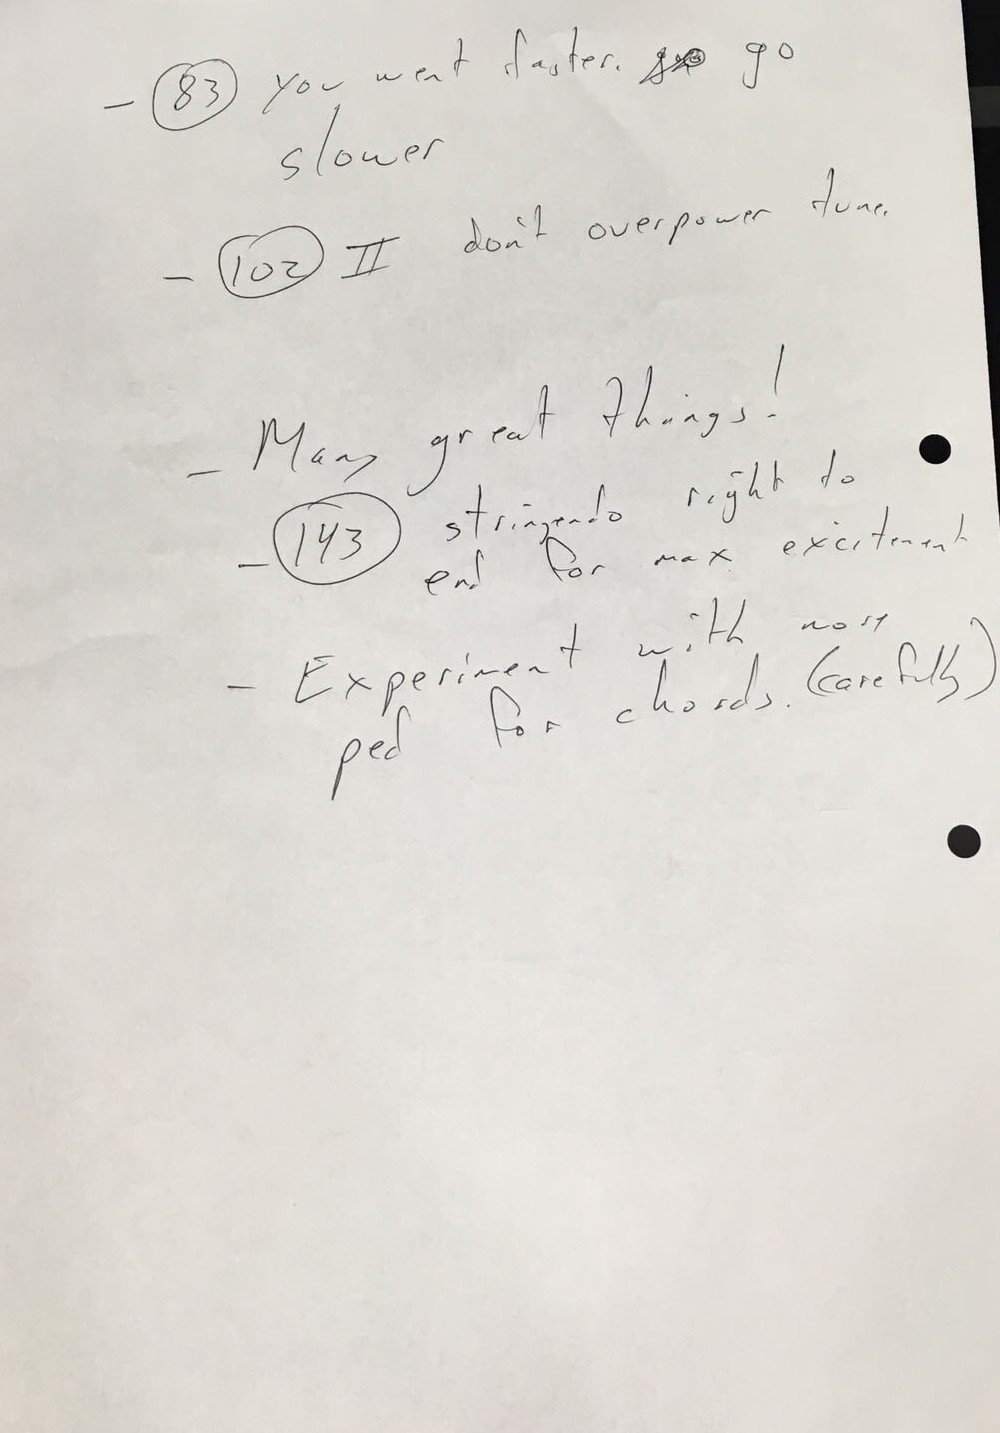 - 83 you went faster. go
slower
- 102 II don't overpower tune.
- Many great things!
- 143 stringendo right to
end for max excitement
- Experiment with more
ped for chords. (carefully)